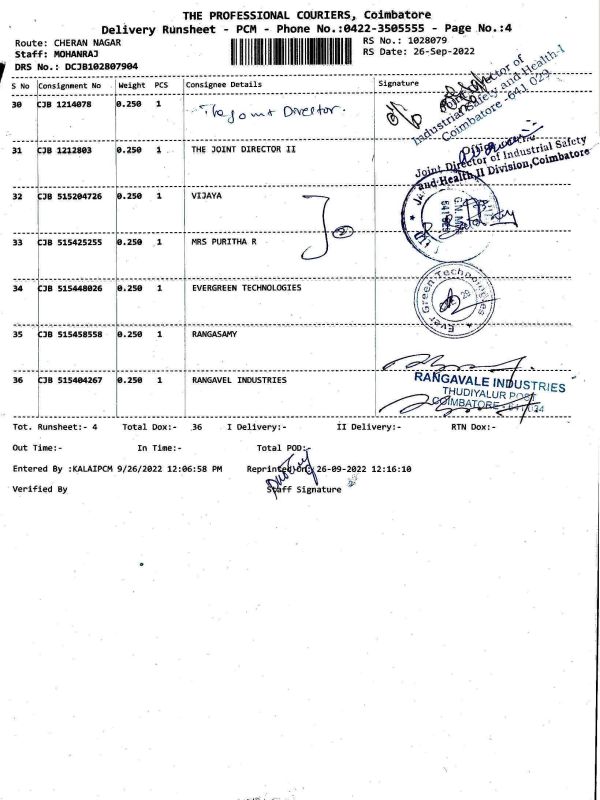 THE PROFESSIONAL COURIERS, Coimbatore
Delivery Runsheet - PCM - Phone No.:0422-3505555 - Page No.:4
Route: CHERAN NAGAR
RS No.: 1028079
Staff: MOHANRAJ
RS Date: 26-Sep-2022
DRS No.: DCJB102807904
S No Consignment No Weight PCS Consignee Details Signature
30 CJB 1214078 0.250 1 The Joint Director.
Joint Director of
Industrial Safety and Health-I
Coimbatore -641 029
31 CJB 1212803 0.250 1 THE JOINT DIRECTOR II
Joint Director of Industrial Safety
and Health, II Division, Coimbatore
32 CJB 515204726 0.250 1 VIJAYA
2
33 CJB 515425255 0.250 1 MRS PURITHA R
34 CJB 515448026 0.250 1 EVERGREEN TECHNOLOGIES
Ever Green Technologies
35 CJB 515458558 0.250 1 RANGASAMY
36 CJB 515404267 0.250 1 RANGAVEL INDUSTRIES
RANGAVALE INDUSTRIES
THUDIYALUR POST
COIMBATORE - 641 034
Tot. Runsheet:- 4 Total Dox:- 36 I Delivery:- II Delivery:- RTN Dox:-
Out Time:- In Time:- Total POD:-
Entered By :KALAIPCM 9/26/2022 12:06:58 PM Reprinted On: 26-09-2022 12:16:10
Verified By Staff Signature